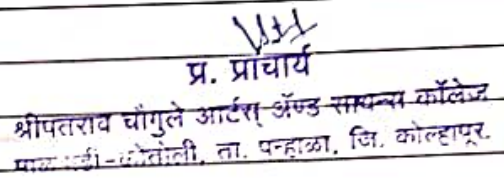 प्र. प्राचार्य
श्रीपतराव चौगुले आर्टस् ॲण्ड सायन्स कॉलेज
माळवाडी-कोतोली, ता. पन्हाळा, जि. कोल्हापूर.